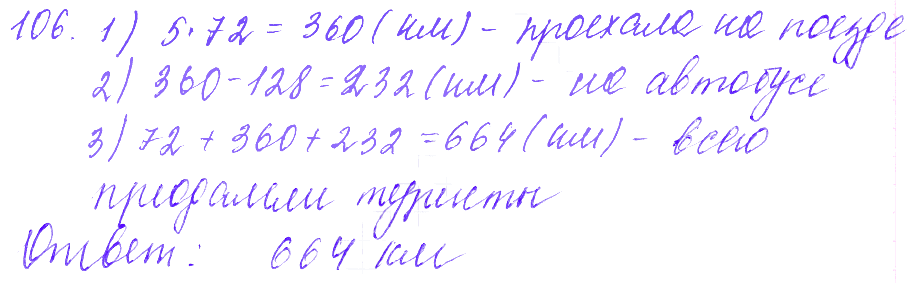 106. 1) 5·72 = 360 (км) - проехала на поезде
2) 360-128=232 (км) - на автобусе
3) 72 + 360 + 232 = 664 (км) - всего
преодолели туристы
Ответ: 664 км